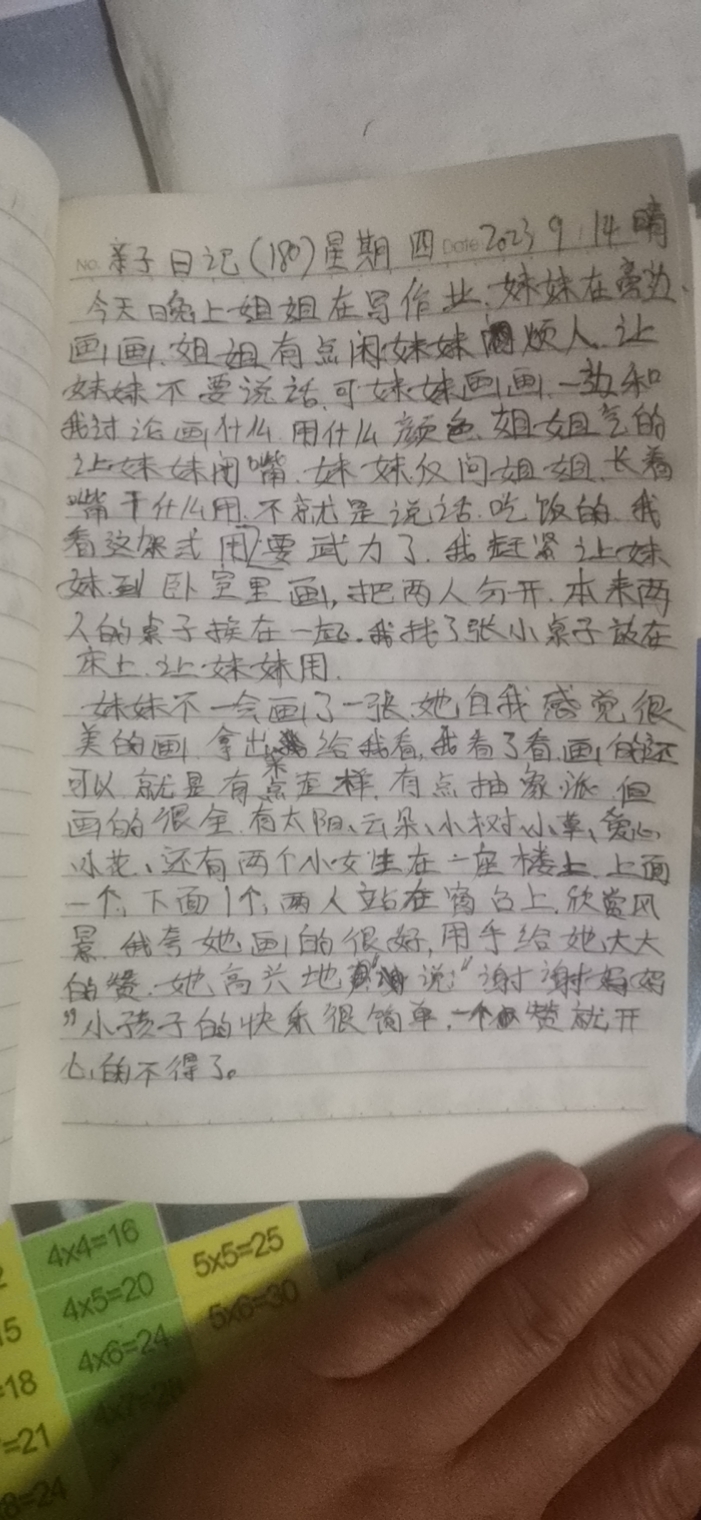 No. 亲子日记(180)星期四 Date 2023 9 14 晴
今天晚上姐姐在写作业.妹妹在旁边
画画.姐姐有点闲妹妹 烦人.让
妹妹不要说话.可妹妹画画.一边和
我讨论画什么.用什么颜色.姐姐气的
让妹妹闭嘴.妹妹反问姐姐.长着
嘴干什么用.不就是说话.吃饭的.我
看这架式用要武力了.我赶紧让妹
妹.到卧室里画,把两人分开.本来两
人的桌子挨在一起.我找了张小桌子放在
床上.让妹妹用.
妹妹不一会画了一张.她自我感觉很
美的画.拿出 给我看.我看了看.画的还
可以就是有点走样.有点抽象派.但
画的很全.有太阳、云朵、小树、小草、爱心
小花、还有两个小女生在一座楼上.上面
一个,下面1个,两人站在窗台上.欣赏风
景.我夸她画的很好,用手给她大大
的赞.她高兴地 说:“谢谢妈妈
”小孩子的快乐很简单.一个赞就开
心的不得了。
4x4=16
5x5=25
4x5=20
5x6=30
4x6=24
=18
=21
8=24